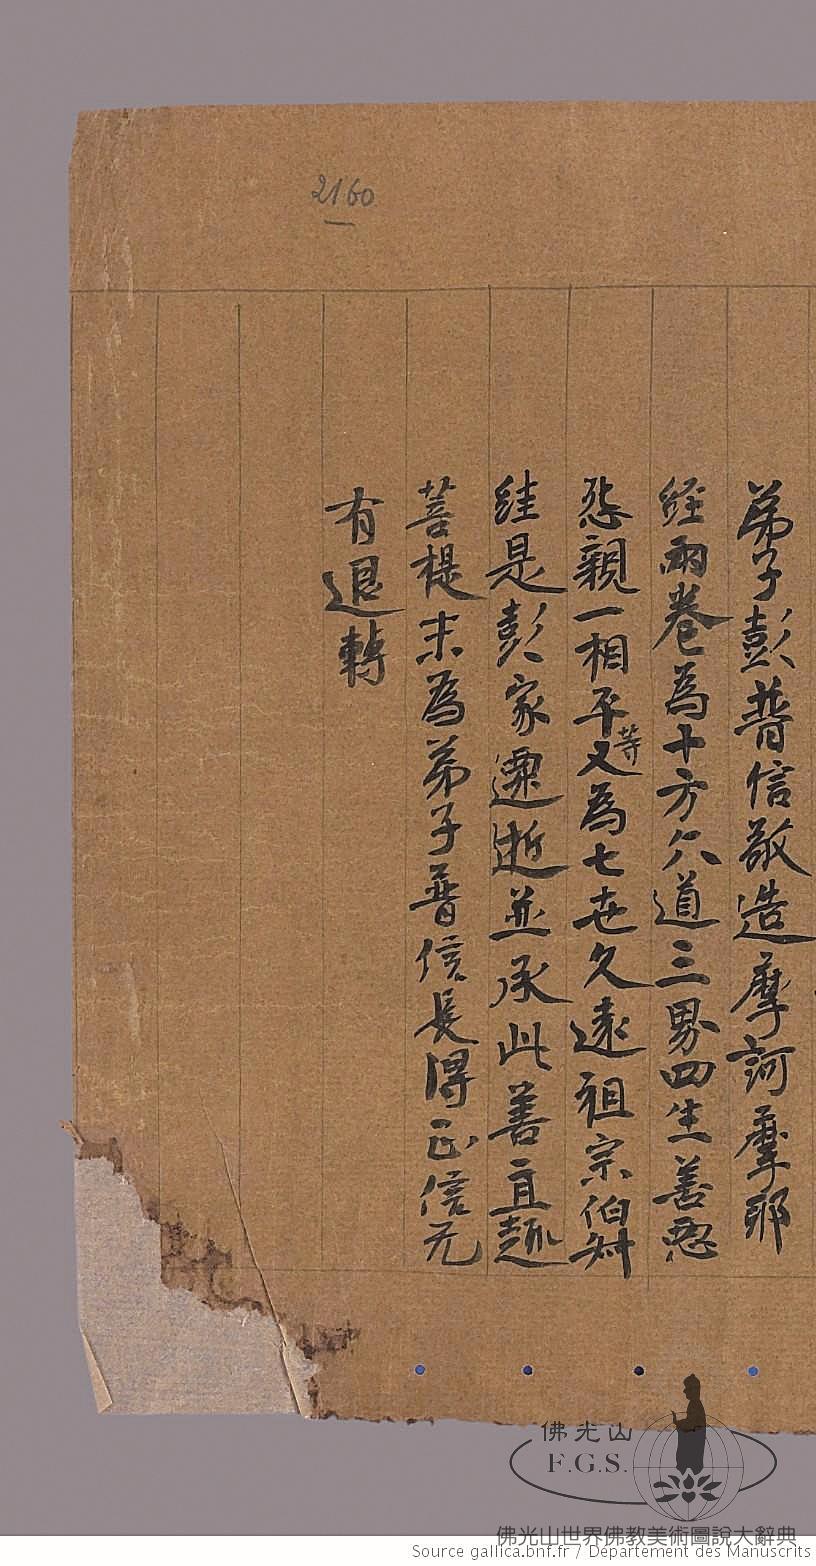 2160
弟子彭普信敬造摩訶摩耶
經兩卷為十方六道三界四生善惡
怨親一相平等又為七世久遠祖宗伯叔
經是彭家遷逝並承此善直趣
菩提末為弟子普信長得正信无
有退轉
佛光山
F.G.S.
佛光山世界佛教美術圖說大辭典
Source gallica.bnf.fr / Département des Manuscrits